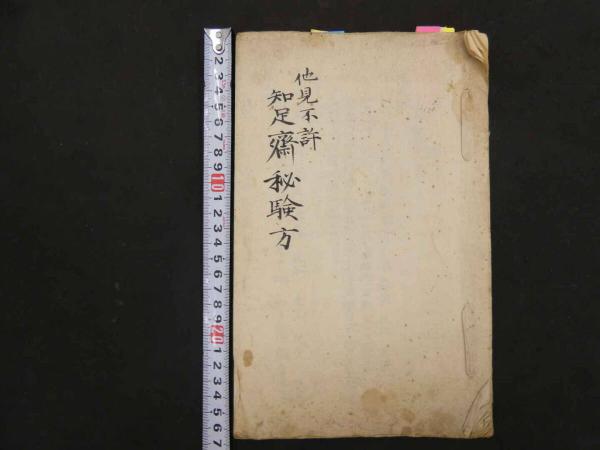 他見不許
知足齋秘験方
2
3
4
5
6
7
8
9
10
1
2
3
4
5
6
7
8
9
20
1
2
3
4
5
6
7